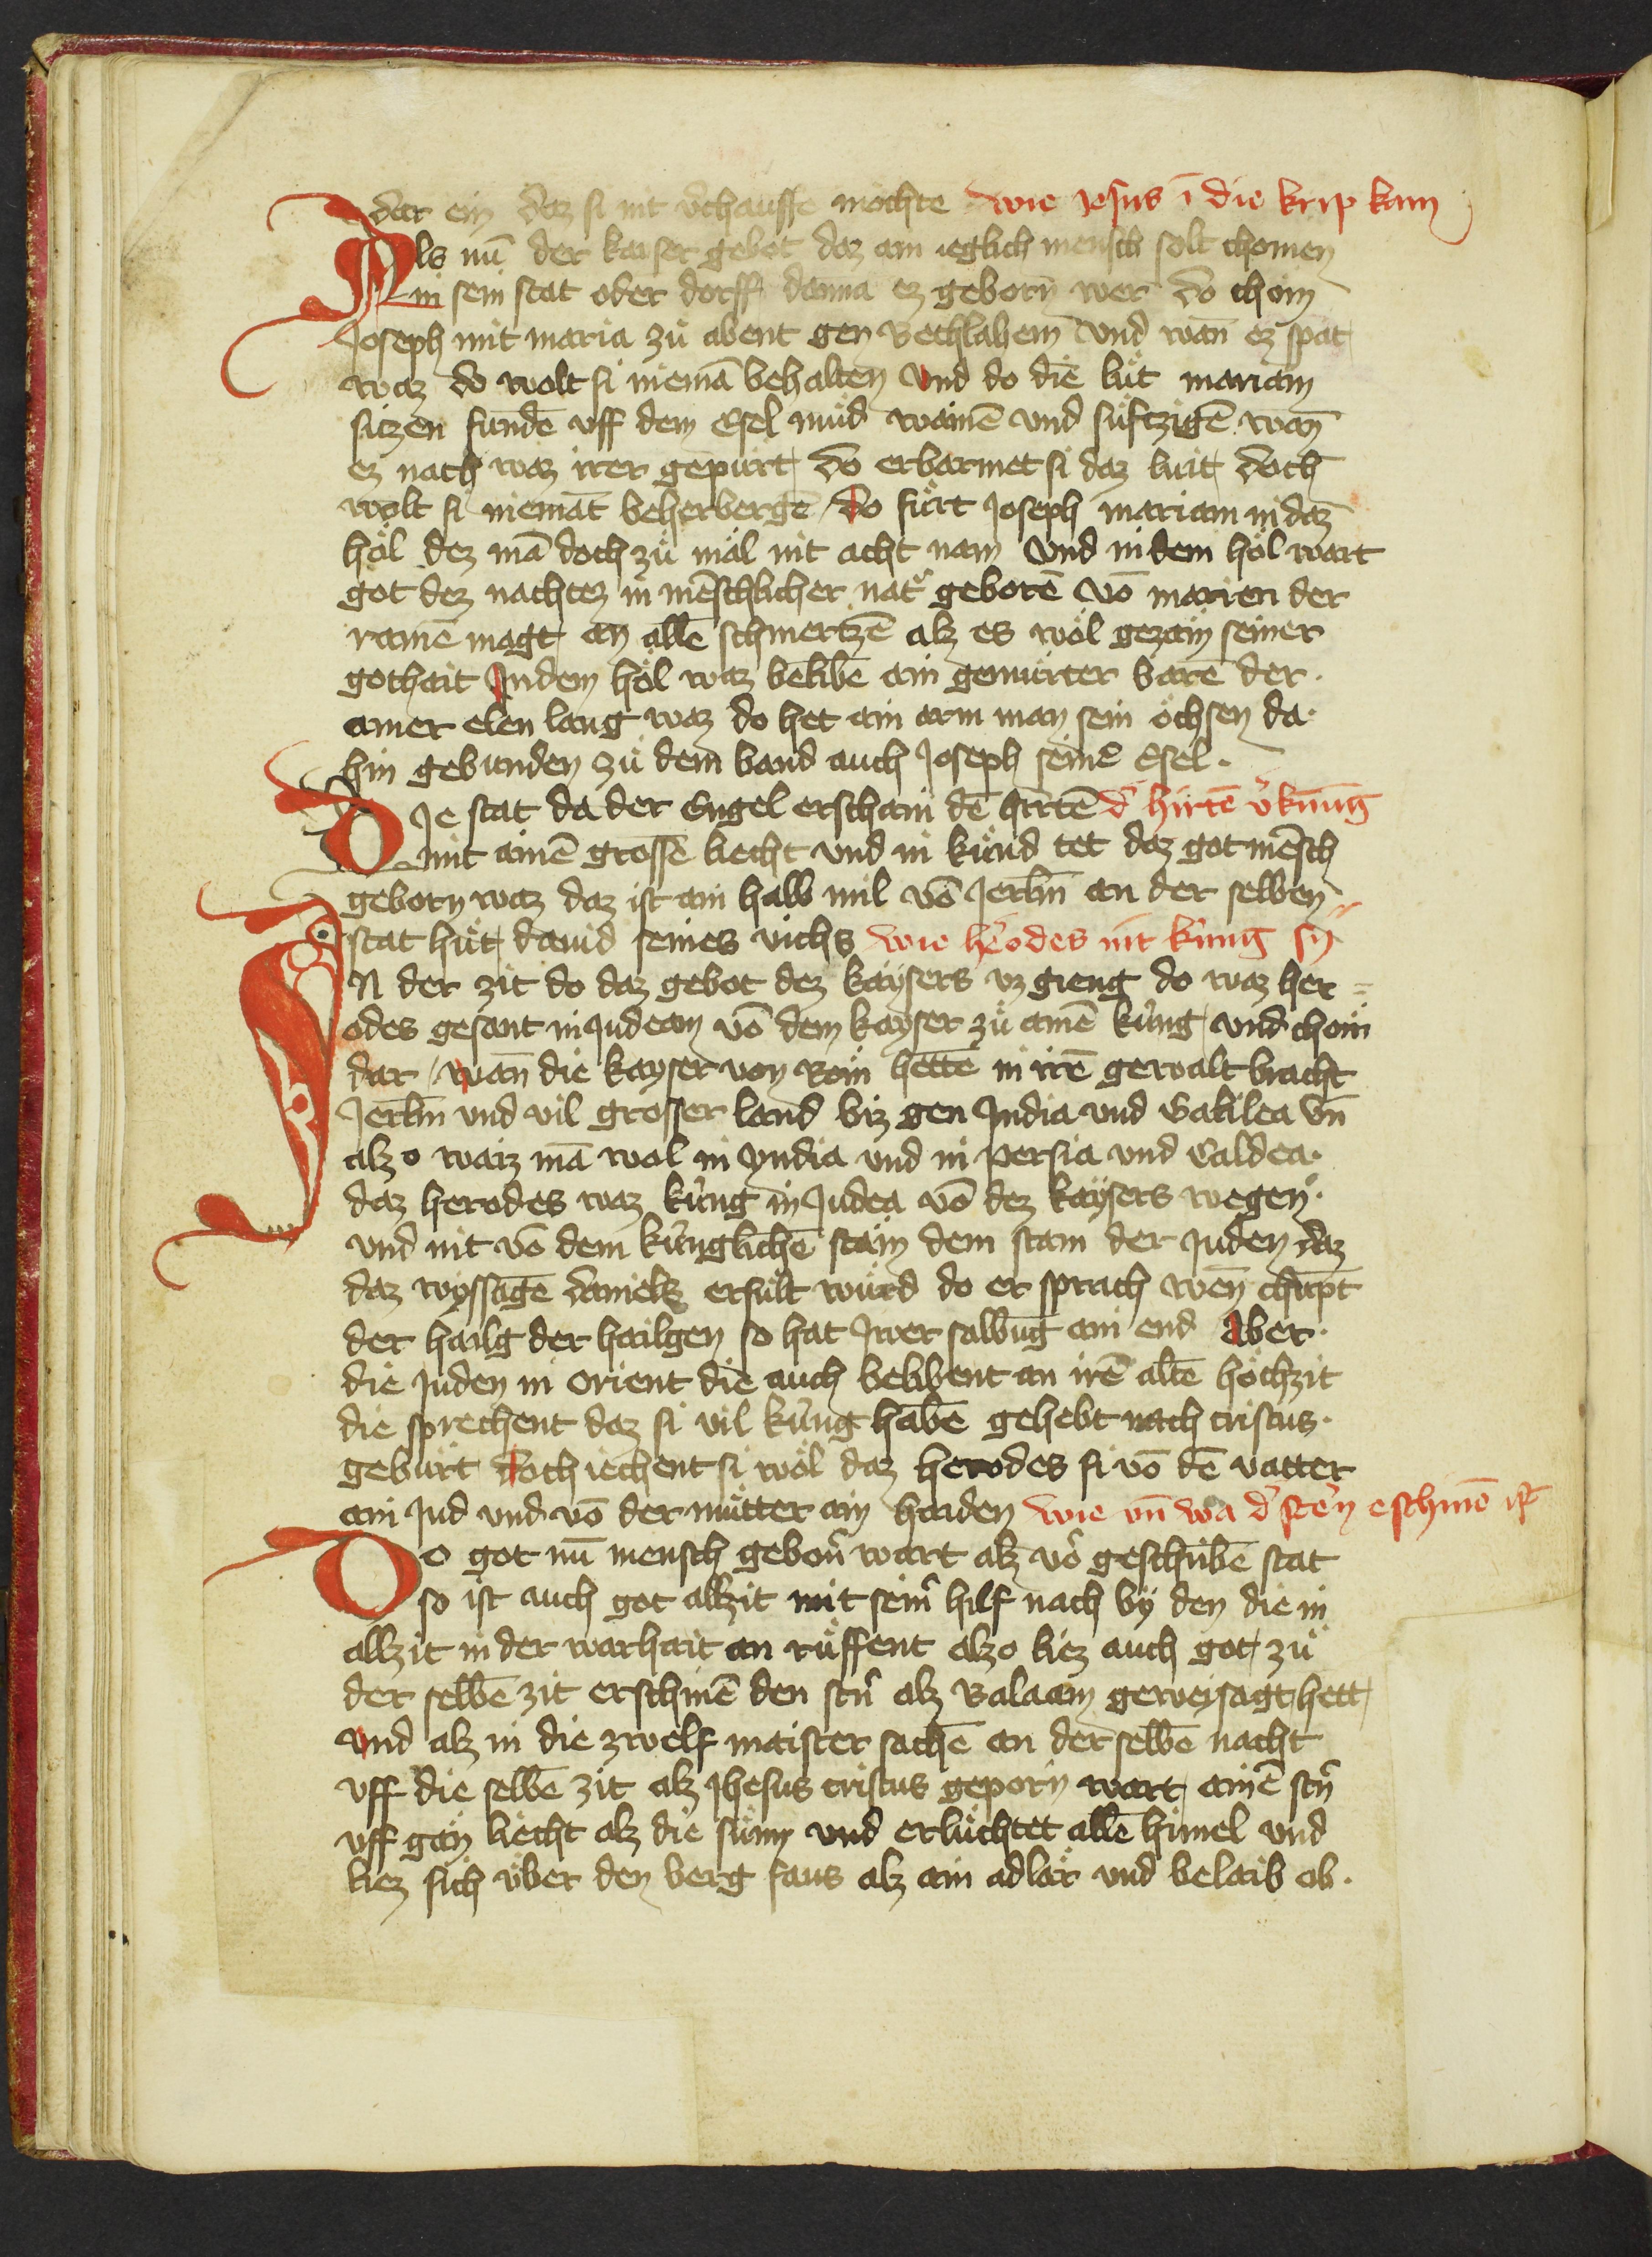 dar ein daz si nit v̾chauffe mochte wie jesus ī die krip kam
Als nū der kaiser gebot daz ain ieglich mensch solt chomen
in sein stat oder dorff danna ez geborn wer do chom
Joseph mit maria zů abent gen Bethlahem Vnd wan̄ ez spat
waz do wolt si niemā behalten Vnd do die lu̍t mariam
sitzen fundē vff dem Esel mu̍d wainē vnd su̍ftzigē wan̄
ez nach waz irer gepurt do erbarmet si daz luit doch
wolt si niemāt beherbergē / do fůrt Joseph mariam in daz
höl dez mā doch zů mäl nit acht nam Vnd in dem höl wart
got dez nachtez in mēschlicher nat᷑ geborē vō marien der
rainē magt an allē schmertzē alz es wöl gezam seiner
gothait Jn dem höl waz belibē ain gemu̍rter barē der.
ainer elen lang waz do het ain arm man sein öchsen da.
hin gebunden zů dem band auch Joseph seinē Esel.
DJe stat da der Engel erschain dē hirtē d᷑ hirtē v̾ku̍nūg
mit ainē grossē liecht vnd in ku̍nd tet daz got mēsch
geborn waz daz ist ain halb mil vō Jerl̄m an der selben
stat hu̍t dauid seines vichs wie h̾odes nit ku̍ng sy
IN der zit do daz gebot dez kaysers vz gieng do waz her=
odes gesant in Judeam vō dem kayser zů ainē ku̍ng vnd chom
dar / wan̄ die kayser von Rom hettē in irē gewalt bracht
Jerl̄m vnd vil grosser land biz gen India vnd Galilea vn̄
alzo waiz mā wol in yndia vnd in persia vnd Caldea.
daz herodes waz ku̍ng in Judea vō dez kaysers wegen.
vnd nit vō dem ku̍nglichē stam dem stam der Juden daz
daz wyssagē danielz erfu̍lt wu̍rd do er sprach wen̄ chūpt
der hailg der hailgen so hat Jwer salbūg ain end Aber.
die Juden in orient die auch belibent an irē altē höchzit
die sprechent daz si vil ku̍ng habē gehebt nach cristus.
geburt doch iechent si wöl daz herodes si vō dē vatter
ain Jud vnd vō der můtter ain haiden wie vn̄ wa d᷑ stern eschinē ist
DO got nū mensch geborn wart alz vor geschribē stat
so ist auch got allzit mit sein᷑ hilf nach by den die in
allzit in der warhait an ru̍ffent alzo liez auch got zů
der selbē zit erschinē den stn᷑ alz Balaam geweisagt hett
vnd alz in die zwelf maister sachē an der selbē nacht
vff die selbē zit alz Jhesus cristus geporn wart ainē stn᷑
vff gan liecht alz die su̍nn vnd erlu̍chtet allē himel vnd
liez sich u̍ber den berg faus alz ain adlar vnd belaib ob.